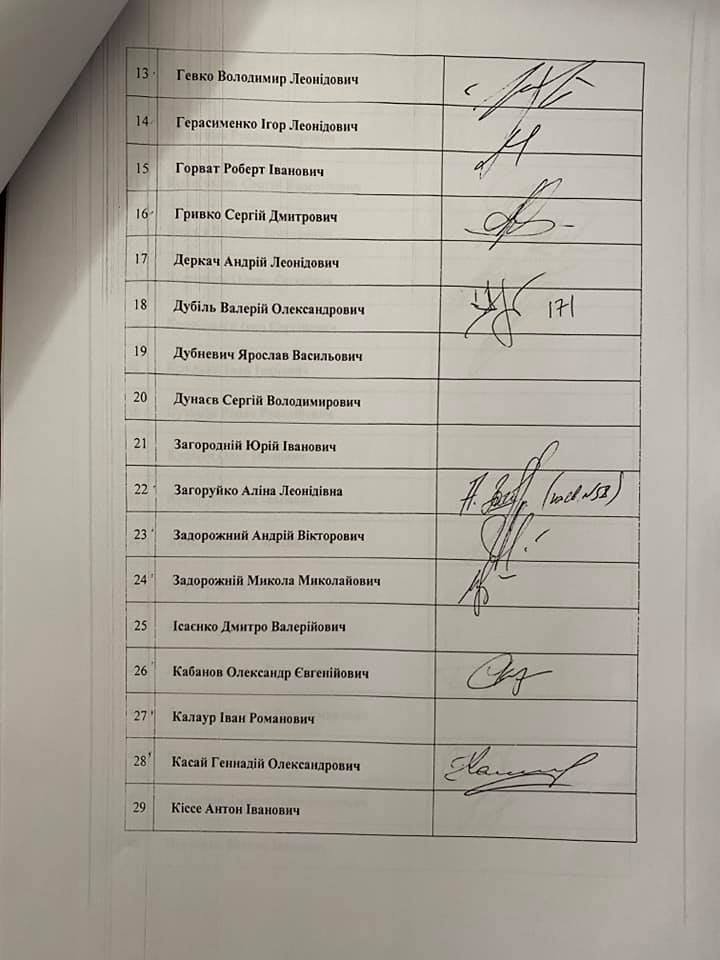 13 Гевко Володимир Леонідович
14 Герасименко Ігор Леонідович
15 Горват Роберт Іванович
16 Гривко Сергій Дмитрович
17 Деркач Андрій Леонідович
18 Дубіль Валерій Олександрович 171
19 Дубневич Ярослав Васильович
20 Дунаєв Сергій Володимирович
21 Загородній Юрій Іванович
22 Загоруйко Аліна Леонідівна
23 Задорожний Андрій Вікторович
24 Задорожній Микола Миколайович
25 Ісаєнко Дмитро Валерійович
26 Кабанов Олександр Євгенійович
27 Калаур Іван Романович
28 Касай Геннадій Олександрович
29 Кіссе Антон Іванович